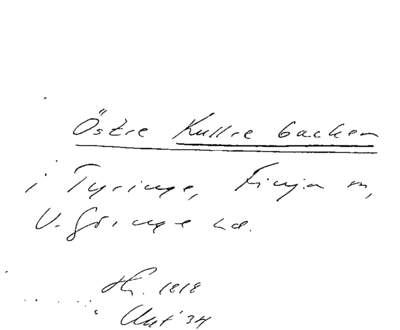 Östre Kullre backen
i Tyringe, Finja sn,
V. Göinge hd.
1818